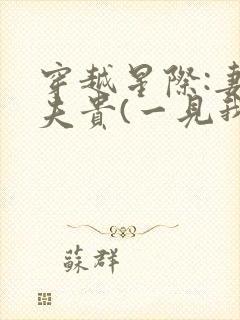 穿越星際:妻
夫貴(一見我
蘇群